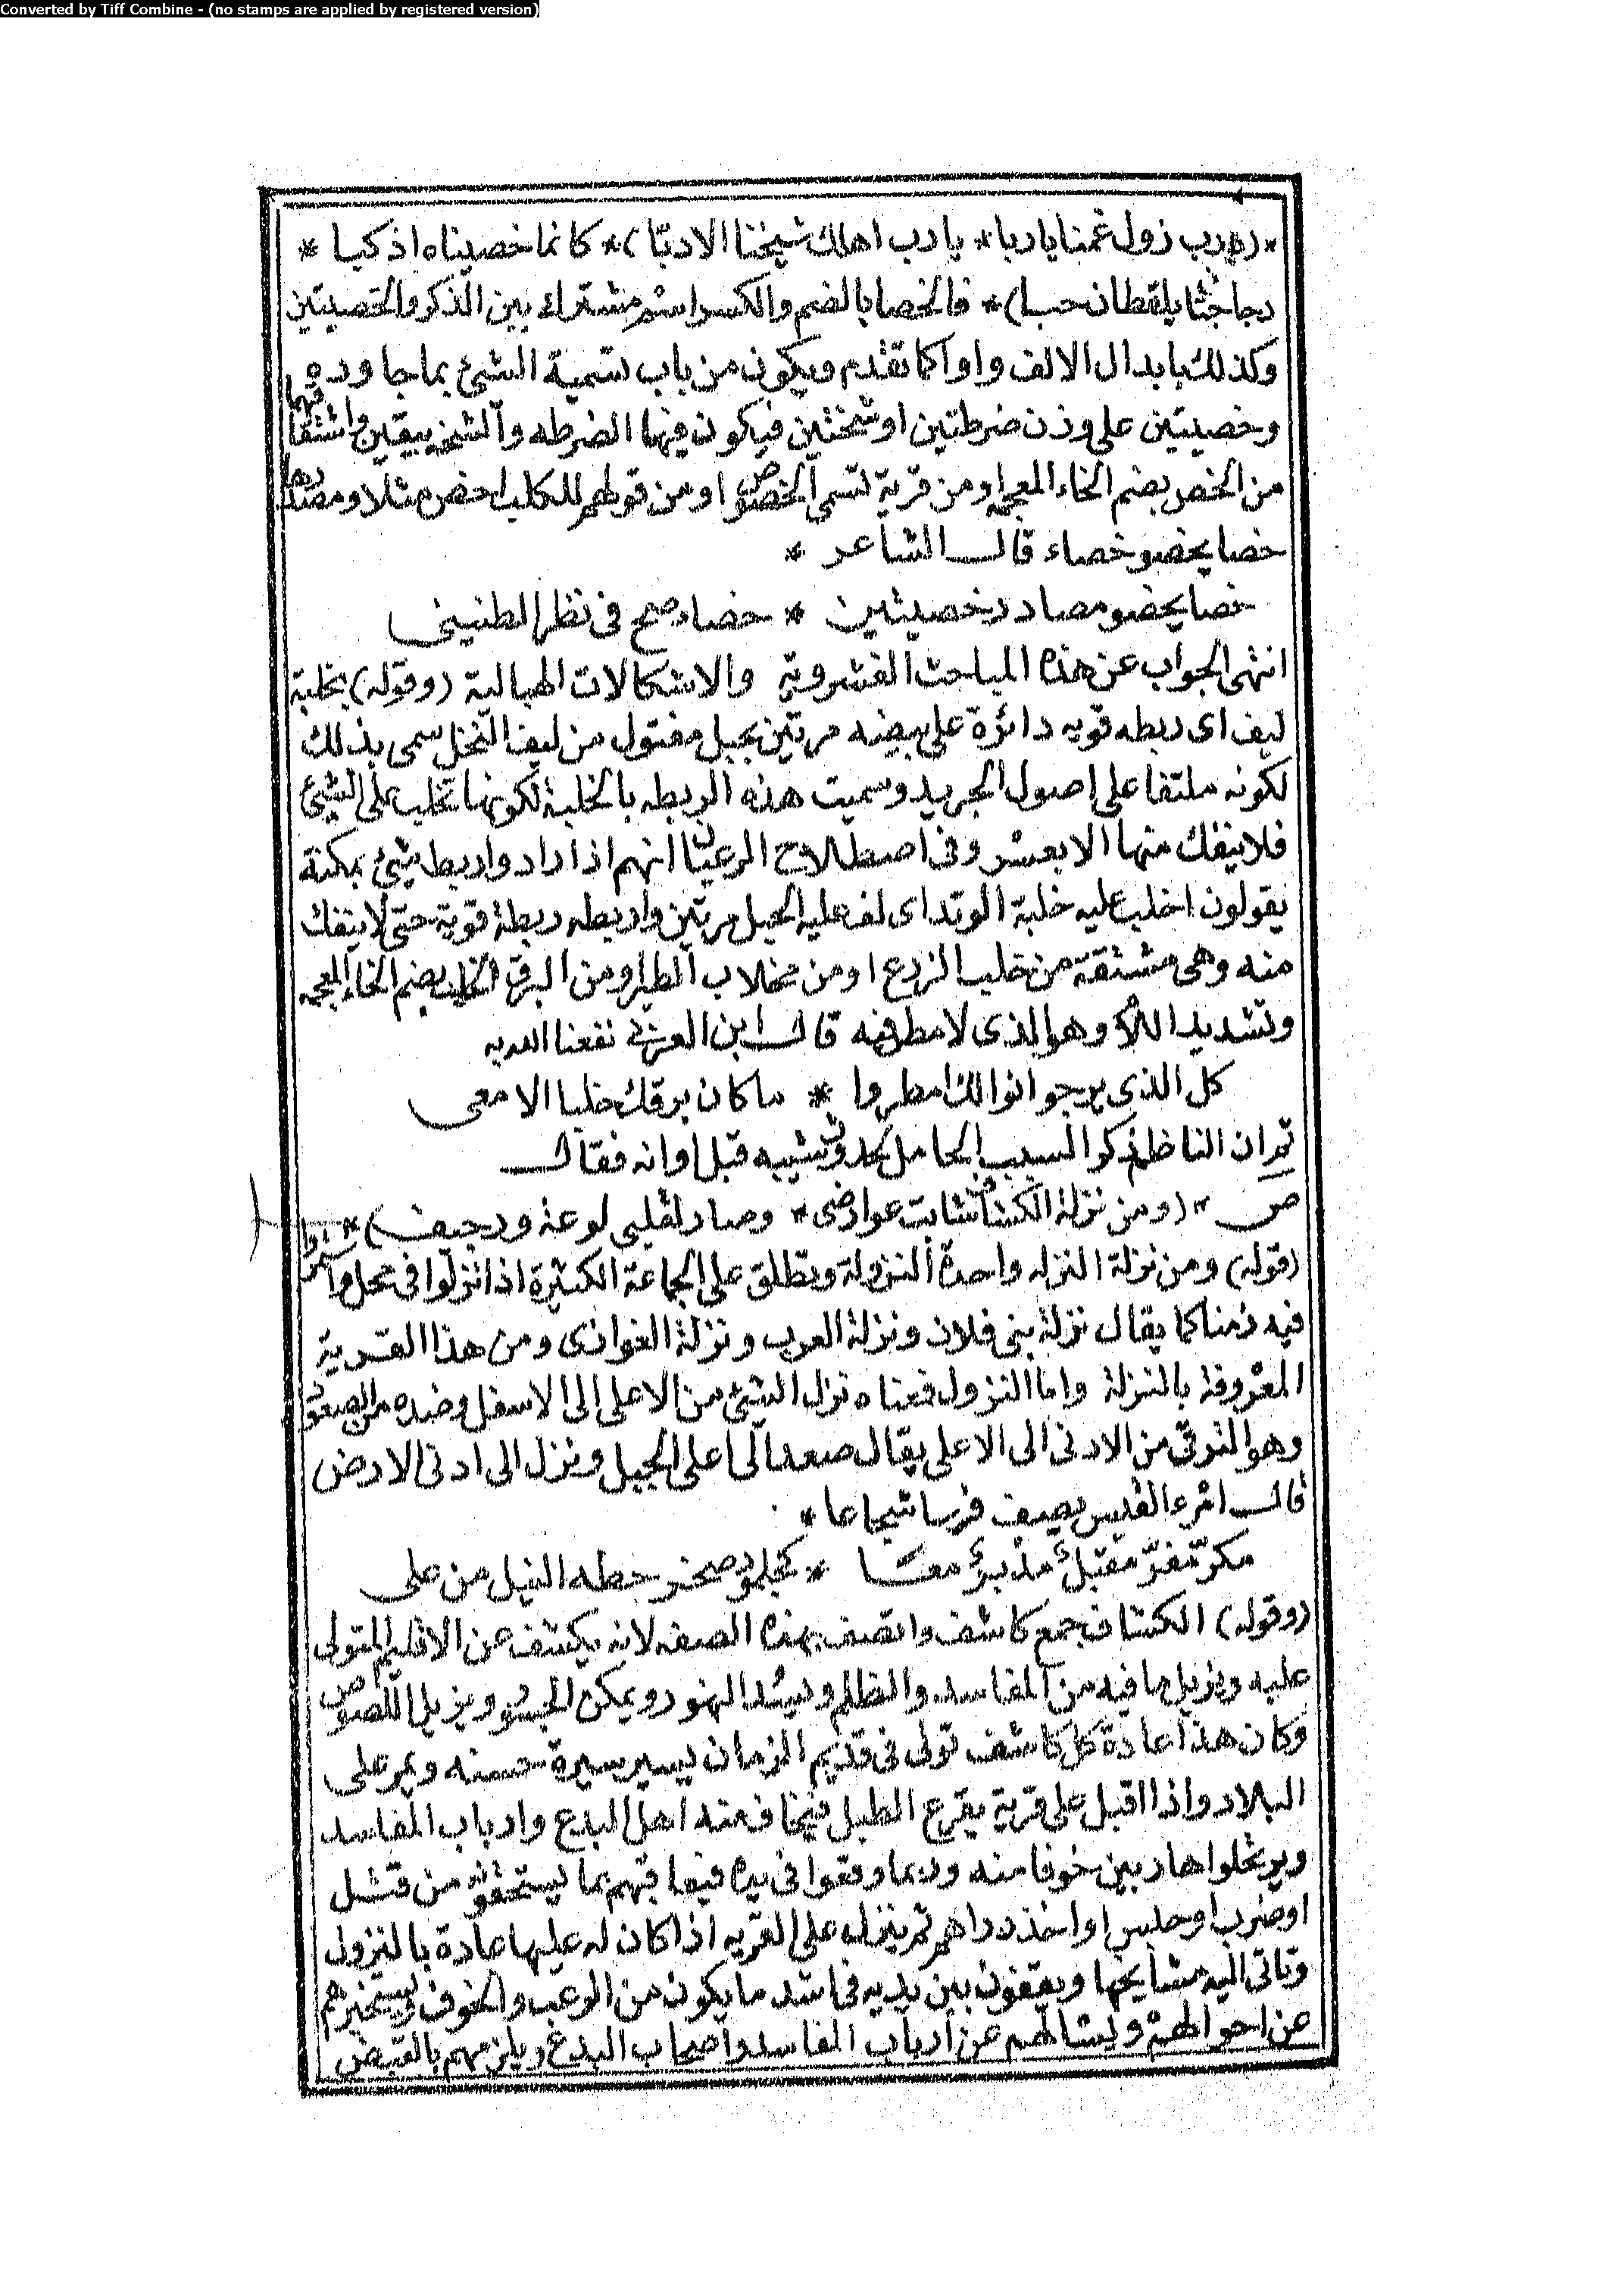 Converted by Tiff Combine - (no stamps are applied by registered version)
* (يارب زول غمنا ياربا * يارب اهلك شيخنا الادبّا) * كانما خصيناه اذ كبا *
دجاجتا يلقطان حبا) * فالخصا بالضم والكسر اسم مشترك بين الذكر والخصيتين
وكذلك بابدال الالف واوا كما تقدم ويكون من باب تسمية الشيء بما جاوره
وخصيتين على وزن ضرطتين او شخختين فيكون فيهما الضرطه والشخه بيقين واشتقاقهما
من الخص بضم الخاء المعجمه او من قرية تسمى الخصوص او من قولهم للكلب اخص مثلا ومصدرها
خصا يخصو خصاء قال الشاعر *
خصا يخصو مصادر خصيتين * خصاء صح في نظر الطنيني
انتهى الجواب عن هذه المباحث الفشرويه والاشكالات الهبالية (وقوله) بخلبة
ليف اى ربطه قويه دائرة على بيضه مرتين بحبل مفتول من ليف النخل سمى بذلك
لكونه ملتفا على اصول الجريد وسميت هذه الربطه بالخلبة لكونها تخلب على الشيئ
فلا ينفك منها الا بعسر وفى اصطلاح الرعيان انهم اذا ارادوا ربط شيئ بمكنة
يقولون اخلب عليه خلبة الوتد اى لف عليه الحبل مرتين واربطه ربطة قوية حتى لا ينفك
منه وهى مشتقة من خلب الزرع او من مخلاب الطير او من البرق الخلب بضم الخاء المعجمه
وتشديد اللام وهو الذى لا مطر فيه قال ابن العربى نفعنا الله به
كل الذى يرجو نوالك امطروا * ما كان برقك خلبا الا معى
ثم ان الناظم ذكر السبب الحامل لحدوث شيبه قبل اوانه فقال
ص * (ومن نزلة الكشاف شابت عوارضى * وصار لقلبي لوعة ورجيف) * ش
(قوله) ومن نزلة النزله واحدة النزولة وتطلق على الجماعة الكثيرة اذا نزلوا فى محل واستمروا
فيه زمنا كما يقال نزلة بنى فلان ونزلة العرب ونزلة الغوازى ومن هذا القرية
المعروفة بالنزلة واما النزول فمعناه نزل الشيئ من الاعلى الى الاسفل وضده من الصعود
وهو الترقى من الادنى الى الاعلى يقال صعد الى اعلى الجبل ونزل الى ادنى الارض
قال امرء القيس يصف فرسا شجاعا *
مكرّ مفرّ مقبل مدبر معا * كجلمود صخر حطه السيل من على
(وقوله) الكشاف جمع كاشف واتصف بهذه الصفه لانه يكشف عن الاقليم المتولى
عليه ويزيل ما فيه من المفاسد والظلم ويسد الهنور ويمكن الجسور ويزيل اللصوص
وكان هذا عادة كل كاشف تولى فى قديم الزمان يسير سيرة حسنه ويمر على
البلاد واذا اقبل على قرية يقرع الطبل فيخاف منه اهل البدع وارباب المفاسد
ويرتحلوا هاربين خوفا منه وربما وقعوا فى يده فيعاقبهم بما يستحقونه من قتل
او ضرب او حبس او اخذ دراهم ثم ينزل على القريه اذا كان له عليها عادة بالنزول
وتاتى اليه مشايخها ويقفون بين يديه فى اشد ما يكون من الرعب والخوف فيستخبرهم
عن احوالهم ويسالهم عن ارباب المفاسد واصحاب البدع ويلزمهم بالقبض